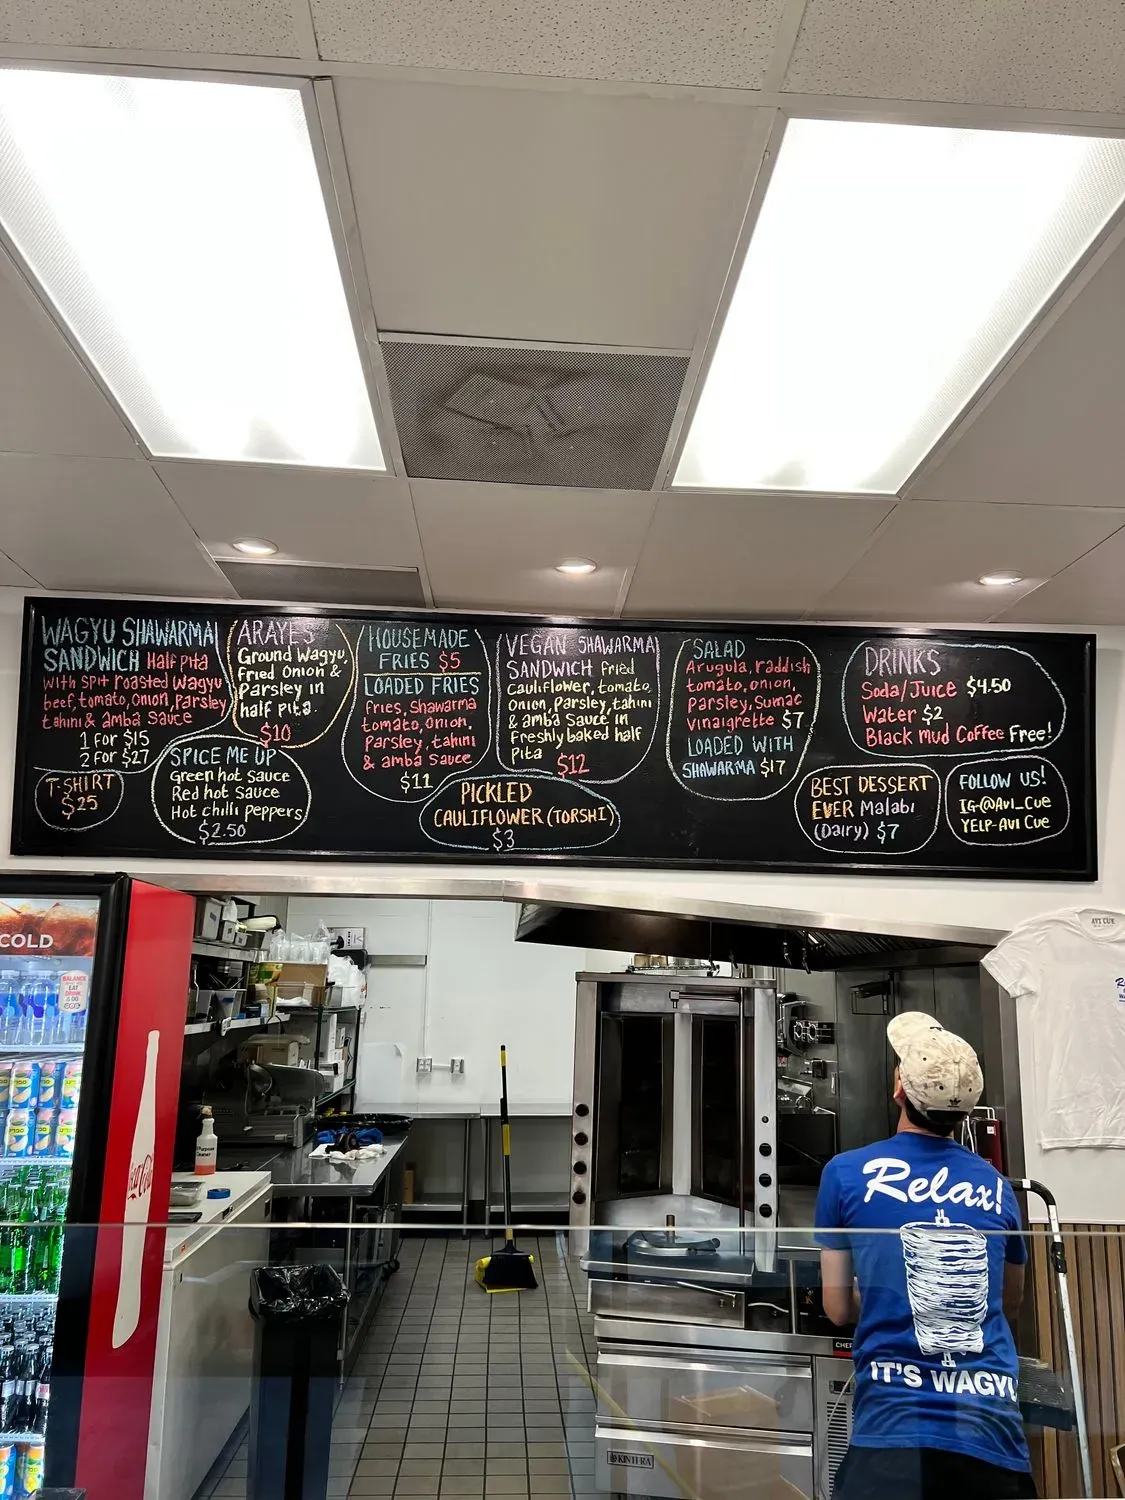 WAGYU SHAWARMA
SANDWICH Half pita
with spit roasted wagyu
beef, tomato, onion, parsley
tahini & amba sauce
1 for $15
2 for $27
T-SHIRT
$25
ARAYES
Ground Wagyu,
Fried Onion &
Parsley in
half pita.
$10
SPICE ME UP
Green hot sauce
Red hot sauce
Hot chilli peppers
$2.50
HOUSEMADE
FRIES $5
LOADED FRIES
fries, shawarma
tomato, onion,
Parsley, tahini
& amba sauce
$11
PICKLED
CAULIFLOWER (TORSHI)
$3
VEGAN SHAWARMA
SANDWICH fried
cauliflower, tomato,
Onion, Parsley, tahini
& amba sauce in
freshly baked half
pita $12
SALAD
Arugula, raddish
tomato, onion,
parsley, sumac
vinaigrette $7
LOADED WITH
SHAWARMA $17
DRINKS
Soda/Juice $4.50
Water $2
Black Mud Coffee Free!
BEST DESSERT
EVER Malabi
(Dairy) $7
FOLLOW US!
IG-@AVI_Cue
YELP-AVI Cue
COLD
BALANCE
EAT
DRINK
& DO
Coca-Cola
AVI CUE
Relax!
IT'S WAGYU
KINTERA
CHEF